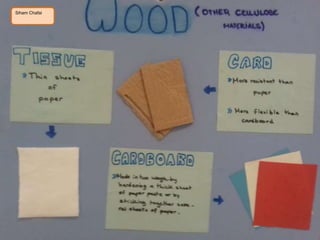 Siham Chafai
WOOD (OTHER CELLULOSE
MATERIALS)
TISSUE
Thin sheets
of
paper
CARD
More resistant than
paper
More flexible than
cardboard
CARDBOARD
Made in two ways: by
hardening a thick sheet
of paper paste or by
sticking together seve-
ral sheets of paper.